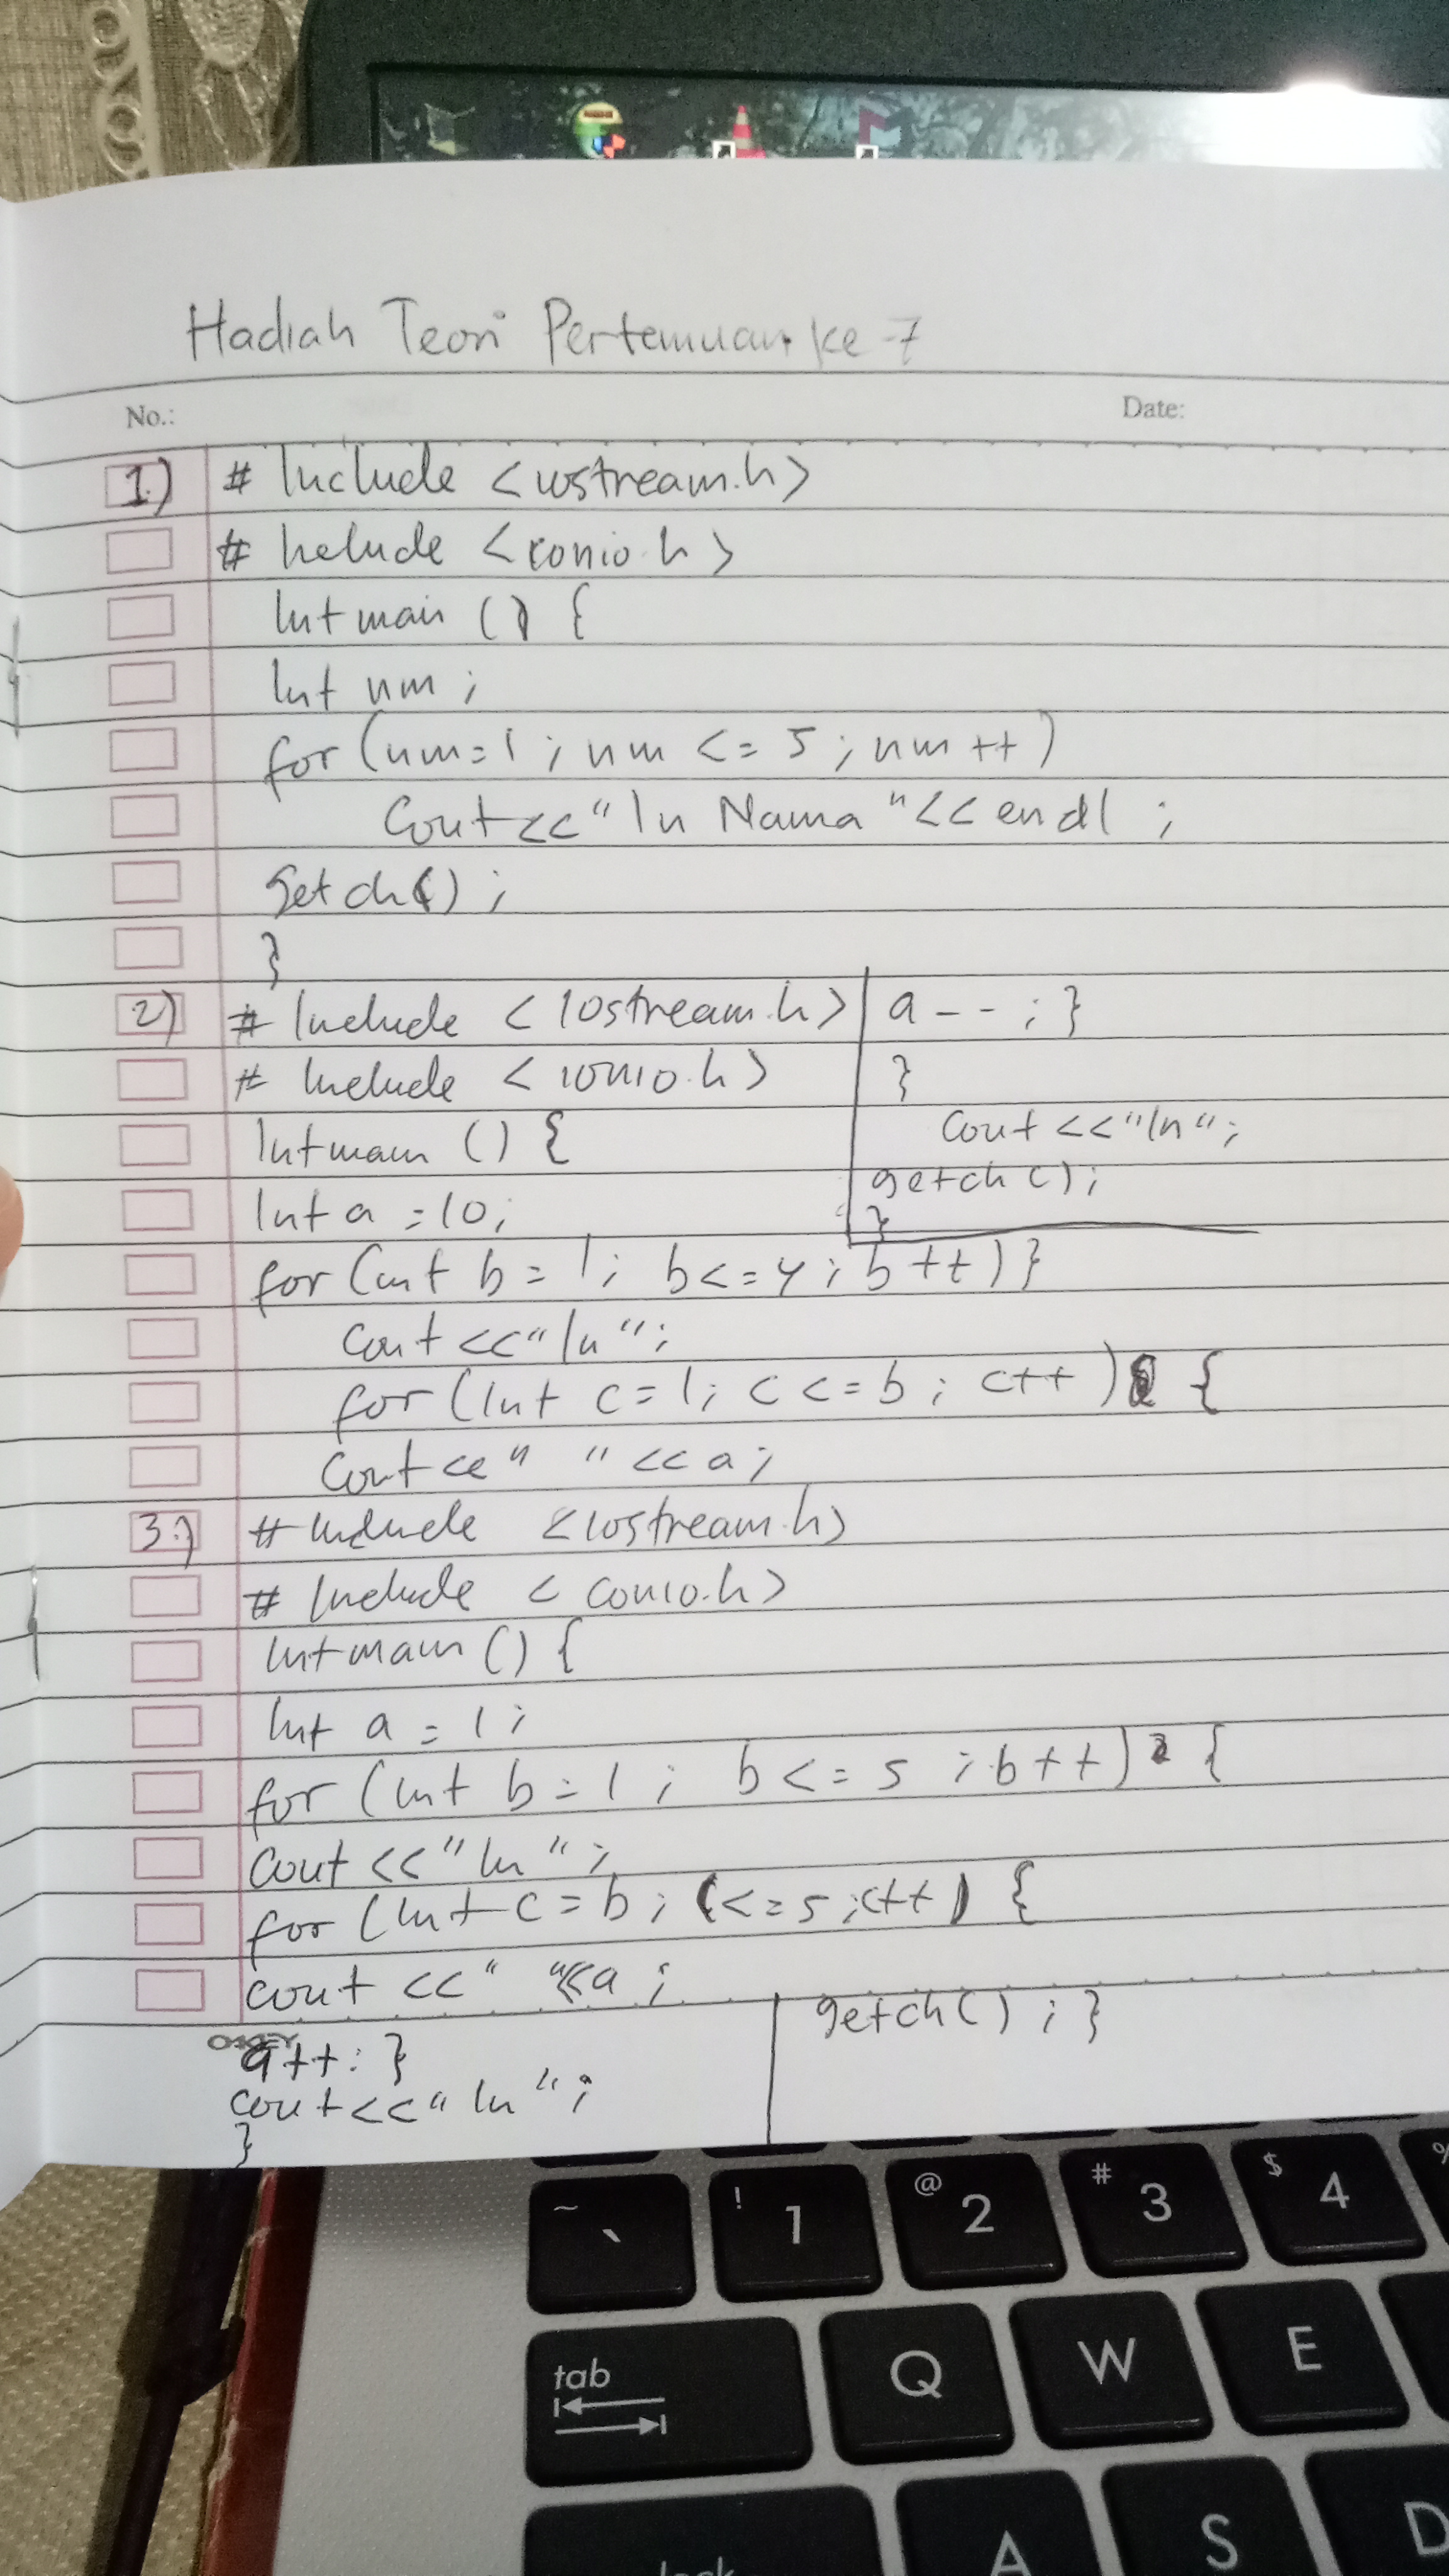 Hadiah Teori Pertemuan ke-7
No.:
Date:
1) # Include <iostream.h>
# Include <conio.h>
Int main () {
Int nm ;
for (nm=1 ; nm <= 5 ; nm ++)
Cout<<"\n Nama "<< endl ;
getch() ;
}
2) # Include <iostream.h>
# Include <conio.h>
Int main () {
Int a = 10;
for (int b = 1; b <= 4 ; b ++) }
cout <<"\n";
for (Int c = 1; c <= b ; c++ ) {
cout <<" " << a ;
a -- ; }
}
Cout <<"\n";
getch ();
}
3.) # Include <iostream.h>
# Include < conio.h>
Int main () {
Int a = 1 ;
for (Int b = 1 ; b <= 5 ; b ++) {
cout <<"\n" ;
for (Int c = b ; c <= 5 ; c++ ) {
cout <<" "<<a ;
a ++ : }
cout <<"\n" ;
}
getch () ; }
~ `
! 1
@ 2
# 3
$ 4
%
tab
Q
W
E
A
S
D
lock